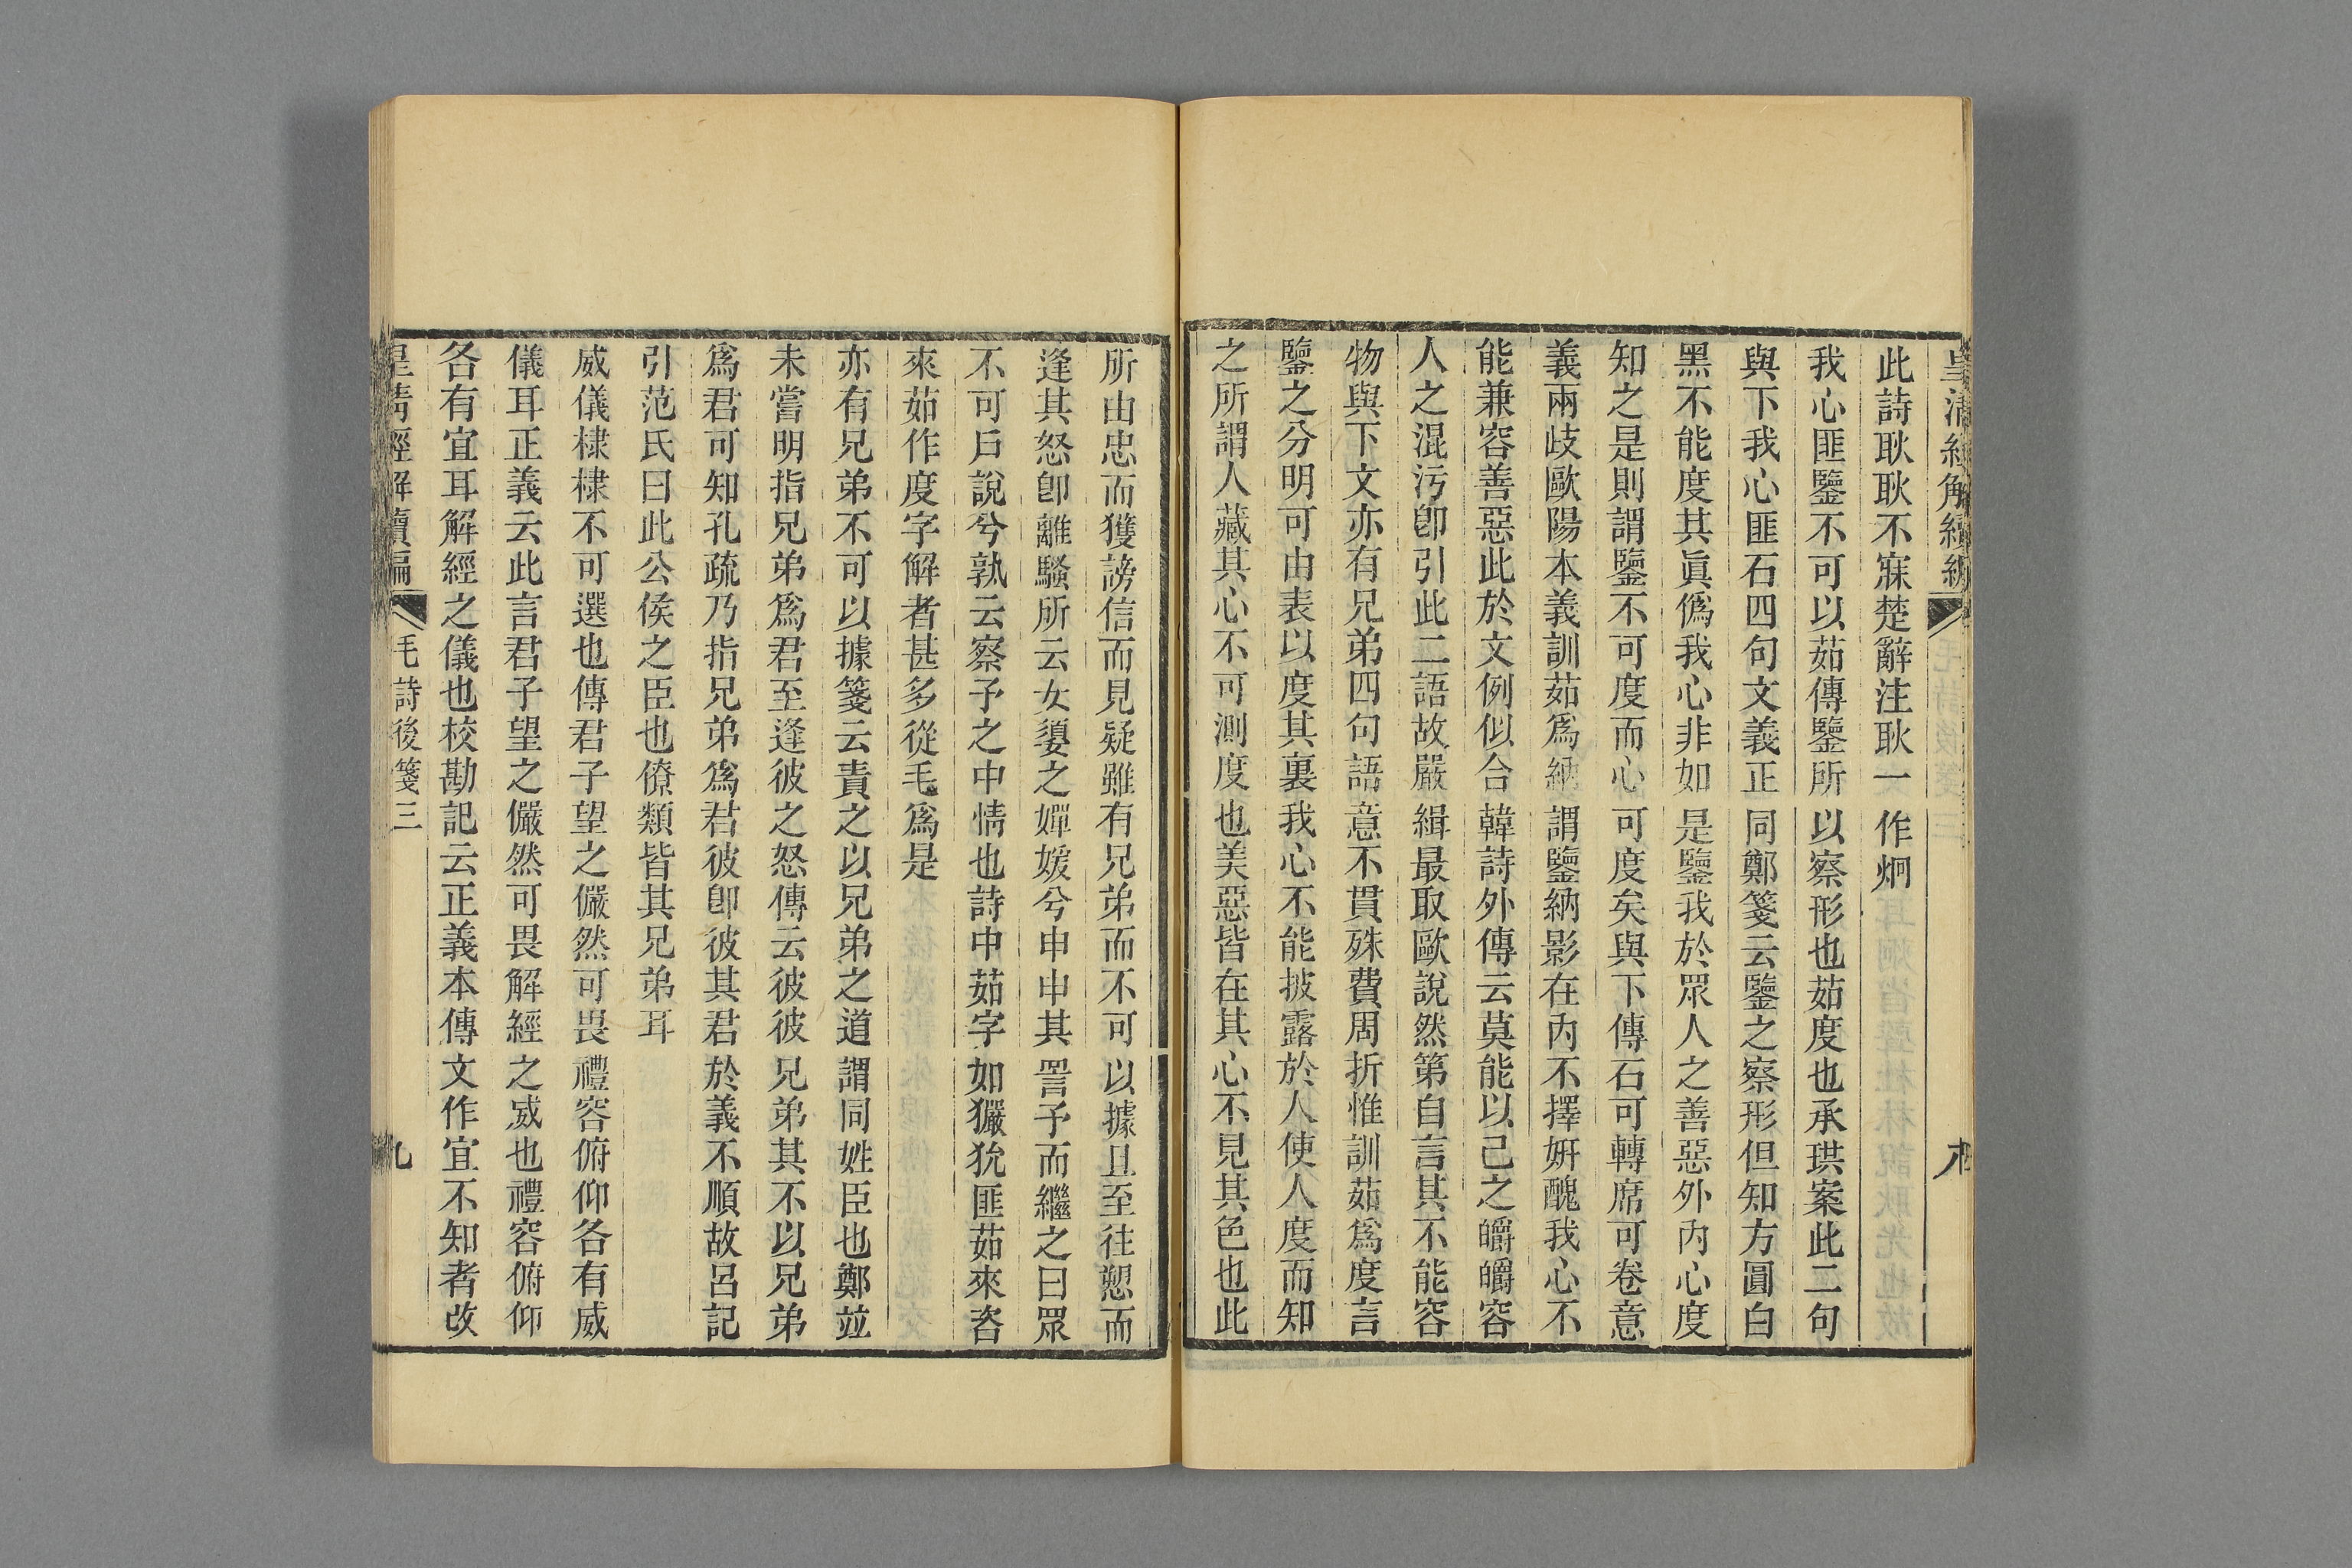 此詩耿耿不寐楚辭注耿一作炯
我心匪鑒不可以茹傳鑒所以察形也茹度也承珙案此二句
與下我心匪石四句文義正同鄭箋云鑒之察形但知方圓白
黑不能度其眞僞我心非如是鑒我於眾人之善惡外內心度
知之是則謂鑒不可度而心可度矣與下傳石可轉席可卷意
義兩歧歐陽本義訓茹爲納謂鑒納影在內不擇妍醜我心不
能兼容善惡此於文例似合韓詩外傳云莫能以己之皭皭容
人之混污卽引此二語故嚴緝最取歐說然第自言其不能容
物與下文亦有兄弟四句語意不貫殊費周折惟訓茹爲度言
鑒之分明可由表以度其裏我心不能披露於人使人度而知
之所謂人藏其心不可測度也美惡皆在其心不見其色也此
所由忠而獲謗信而見疑雖有兄弟而不可以據且至往愬而
逢其怒卽離騷所云女嬃之嬋媛兮申申其詈予而繼之曰眾
不可戶說兮孰云察予之中情也詩中茹字如玁狁匪茹來咨
來茹作度字解者甚多從毛爲是
亦有兄弟不可以據箋云責之以兄弟之道謂同姓臣也鄭竝
未嘗明指兄弟爲君至逢彼之怒傳云彼彼兄弟其不以兄弟
爲君可知孔疏乃指兄弟爲君彼卽彼其君於義不順故呂記
引范氏曰此公侯之臣也僚類皆其兄弟耳
威儀棣棣不可選也傳君子望之儼然可畏禮容俯仰各有威
儀耳正義云此言君子望之儼然可畏解經之威也禮容俯仰
各有宜耳解經之儀也校勘記云正義本傳文作宜不知者改
皇清經解續編 毛詩後箋三 九